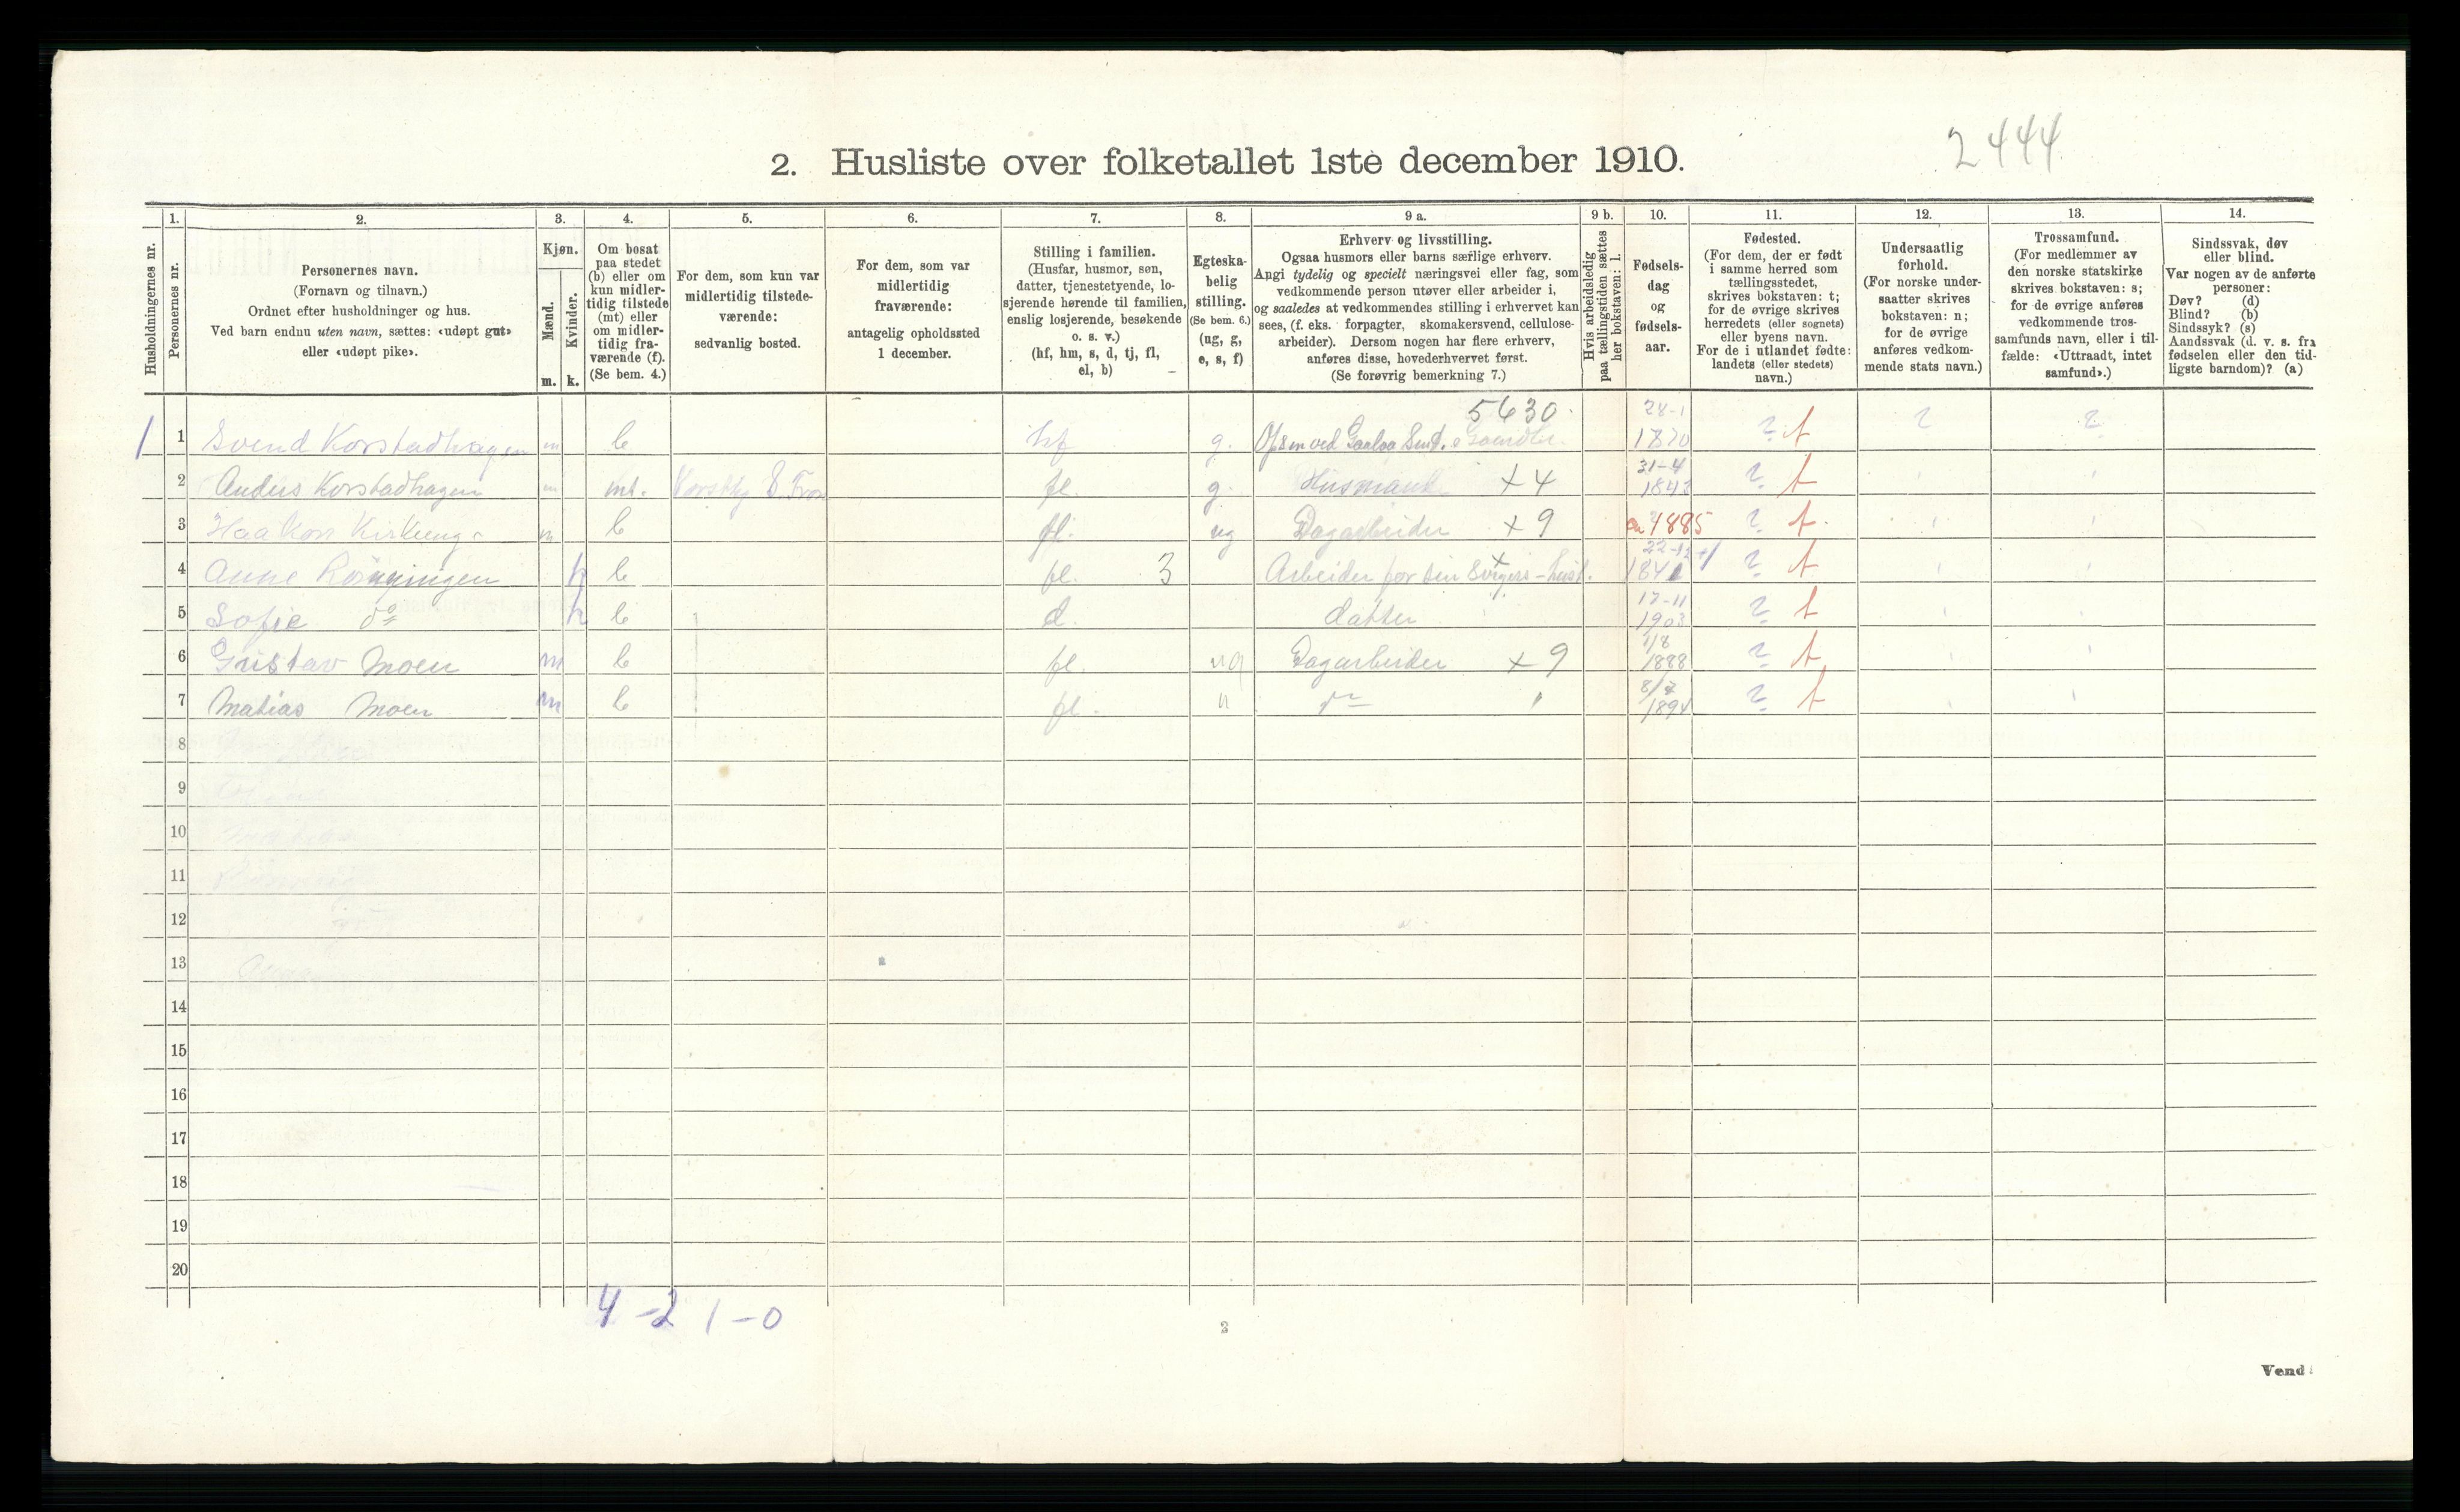 2444
2. Husliste over folketallet 1ste december 1910.
Husholdningernes nr.
1.
Personernes nr.
2.
Personernes navn.
(Fornavn og tilnavn.)
Ordnet efter husholdninger og hus.
Ved barn endnu uten navn, sættes: «udøpt gut»
eller «udøpt pike».
3.
Kjøn.
Mænd.
Kvinder.
m. k.
4.
Om bosat
paa stedet
(b) eller om
kun midler-
tidig tilstede
(mt) eller
om midler-
tidig fra-
værende (f).
(Se bem. 4.)
5.
For dem, som kun var
midlertidig tilstede-
værende:
sedvanlig bosted.
6.
For dem, som var
midlertidig
fraværende:
antagelig opholdssted
1 december.
7.
Stilling i familien.
(Husfar, husmor, søn,
datter, tjenestetyende, lo-
sjerende hørende til familien,
enslig losjerende, besøkende
o. s. v.)
(hf, hm, s, d, tj, fl,
el, b)
8.
Egteska-
belig
stilling.
(Se bem. 6.)
(ug, g,
e, s, f)
9 a.
Erhverv og livsstilling.
Ogsaa husmors eller barns særlige erhverv.
Angi tydelig og specielt næringsvei eller fag, som
vedkommende person utøver eller arbeider i,
og saaledes at vedkommendes stilling i erhvervet kan
sees, (f. eks. forpagter, skomakersvend, cellulose-
arbeider). Dersom nogen har flere erhverv,
anføres disse, hovederhvervet først.
(Se forøvrig bemerkning 7.)
9 b.
Hvis arbeidsledig
paa tællingstiden sættes
her bokstaven: l.
10.
Fødsels-
dag
og
fødsels-
aar.
11.
Fødested.
(For dem, der er født
i samme herred som
tællingsstedet,
skrives bokstaven: t;
for de øvrige skrives
herredets (eller sognets)
eller byens navn.
For de i utlandet fødte:
landets (eller stedets)
navn.)
12.
Undersaatlig
forhold.
(For norske under-
saatter skrives
bokstaven: n;
for de øvrige
anføres vedkom-
mende stats navn.)
13.
Trossamfund.
(For medlemmer av
den norske statskirke
skrives bokstaven: s;
for de øvrige anføres
vedkommende tros-
samfunds navn, eller i til-
fælde: «Uttraadt, intet
samfund».)
14.
Sindssvak, døv
eller blind.
Var nogen av de anførte
personer:
Døv? (d)
Blind? (b)
Sindssyk? (s)
Aandssvak (d. v. s. fra
fødselen eller den tid-
ligste barndom)? (a)
5630. 28-1
1 1 Svend Korstadhagen m b hf g. Ops m ved 1870 ? t ? ?
31-4
2 Anders Korstadhagen m mt. S. Fron fl. g. Husmand +4 ? t
3 Haakon m b fl. ug Dagarbeider +9 1885 ? t.
4 Anne Rönningen k b fl. 3 Arbeider for sin 1841 ? t
17-11
5 Sofie do k b d. datter 1903 ? t
1/8
6 Gustav Moen m b fl. ug Dagarbeider +9 1888 ? t
8/7
7 Matias Moen m b fl. " do " 1894 ? t
8
9
10
11
12
13
14
15
16
17
18
19
20
4-2 1-0
2
Vend!